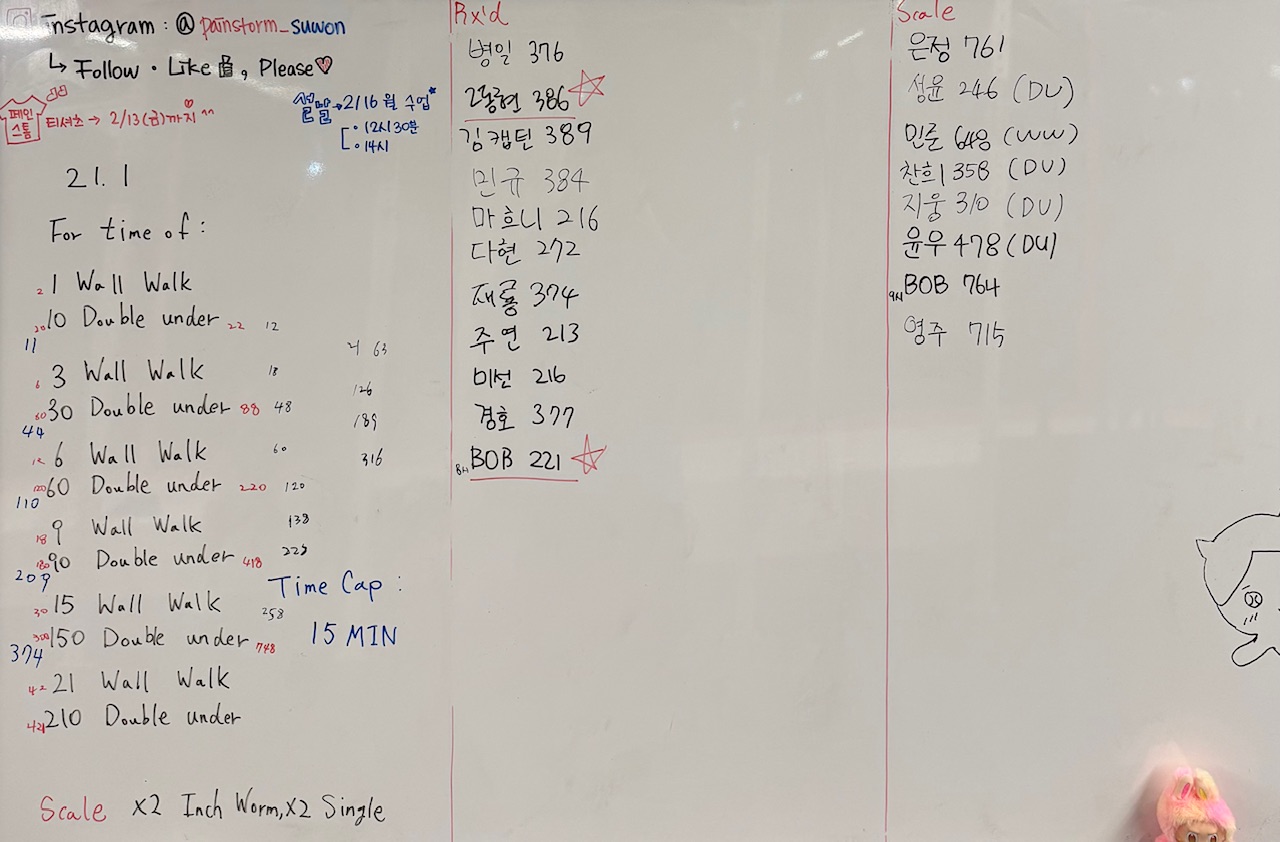 instagram : @ painstorm_suwon
↳ Follow · Like 👍, Please♡
페인
스톰
티셔츠 → 2/13(금)까지 ^^
설날 → 2/16 월 수업*
· 12시30분
· 14시
21. 1
For time of :
2 1 Wall Walk
20 10 Double under 22 12
11
6 3 Wall Walk 18
60 30 Double under 88 48
44
12 6 Wall Walk 60
120 60 Double under 220 120
110
18 9 Wall Walk 138
180 90 Double under 418 228
209
30 15 Wall Walk 258
300 150 Double under 748
374
42 21 Wall Walk
421 210 Double under
63
126
189
316
Time Cap :
15 MIN
Scale X2 Inch Worm, X2 Single
Rx'd
병일 376
고동현 386 ☆
김캡틴 389
민규 384
마흐니 216
다현 272
재룡 374
주연 213
미선 216
경호 377
8시 BOB 221 ☆
Scale
은정 761
성윤 246 (DU)
민준 648 (WW)
찬희 358 (DU)
지웅 310 (DU)
윤우 478 (DU)
9시 BOB 764
영주 715